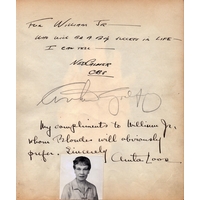 FOR WILLIAM JR —
WHO WILL BE A BIG SUCCESS IN LIFE —
I CAN TELL —
NED CALMER
CBS
My compliments to William Jr.
whom Blondes will obviously
prefer. Sincerely
Anita Loos